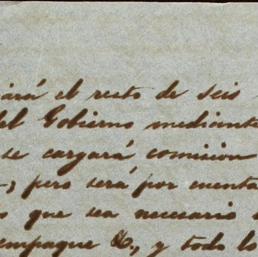 iará el resto de seis
del Gobierno mediante
se cargará comision
; pero será por cuenta
s que sea necesario
empaque &., y todo lo